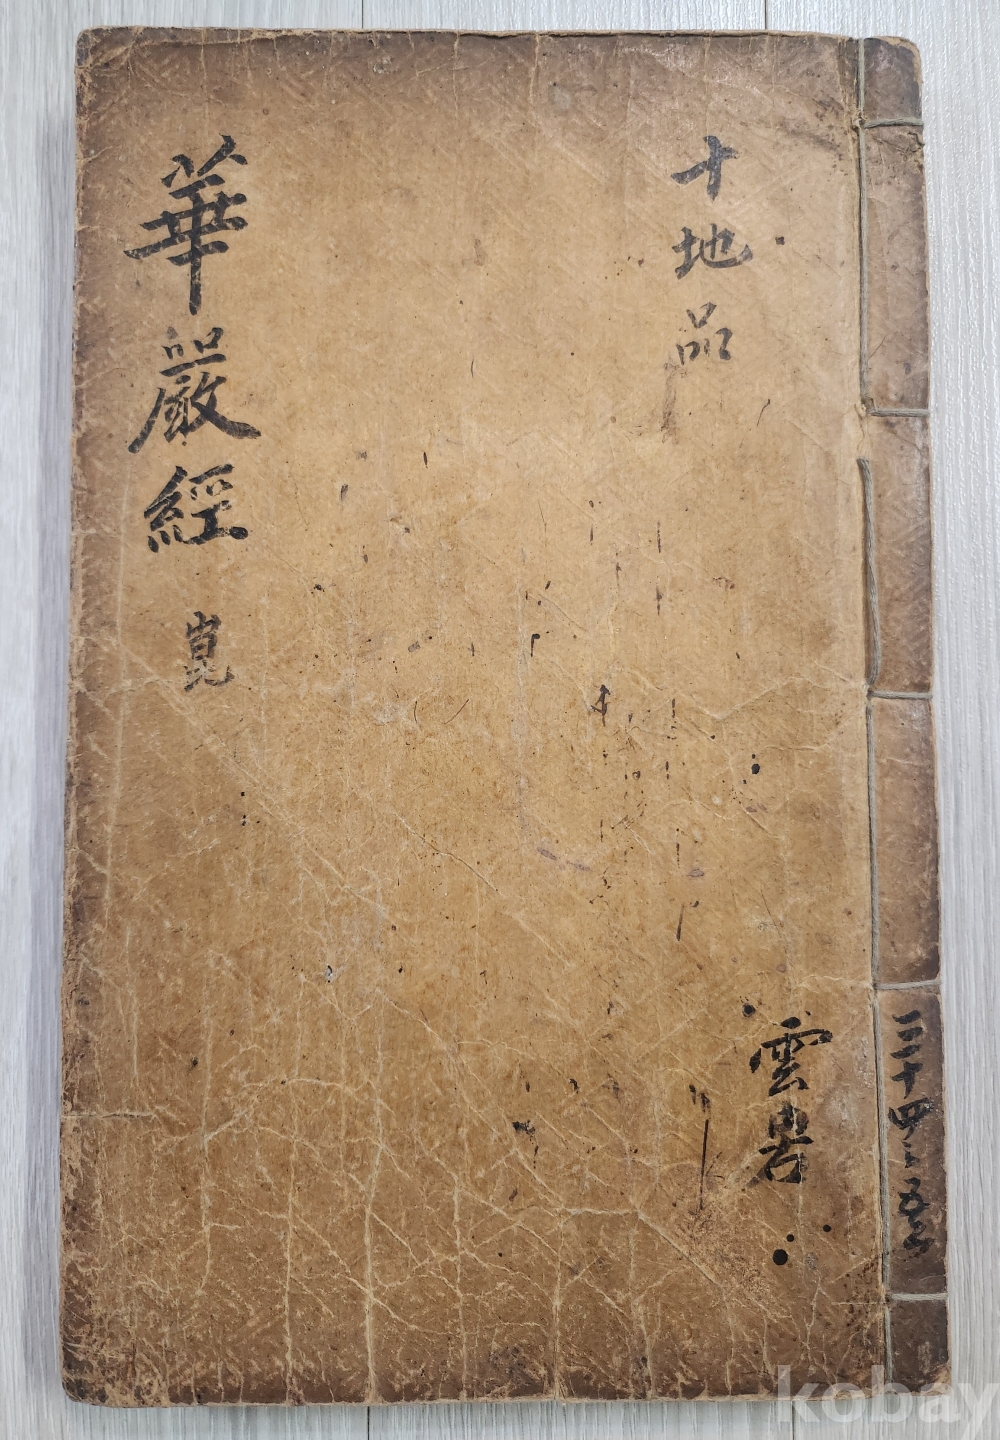 十地品
雲岩
華嚴經 崑
三十四之五之六
kobay